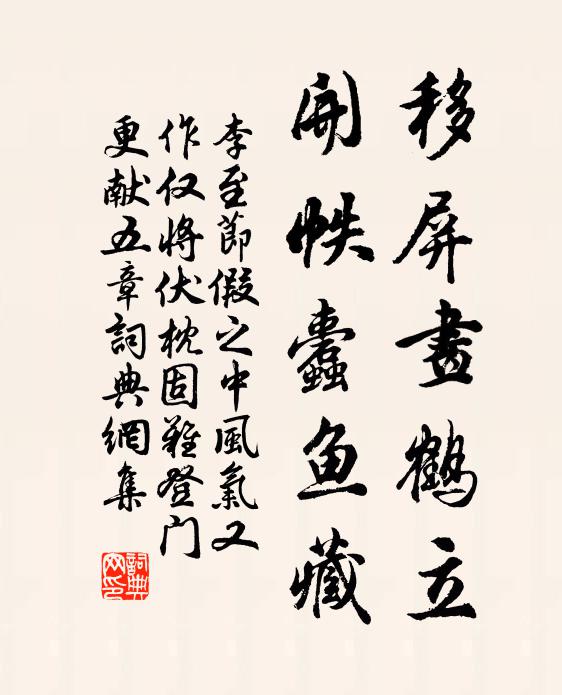 移屏畫鶴立
開帙蠹魚藏
李至節假之中風氣又
作仅將伏枕固難登門
更献五章詞典網集
詞典
网印